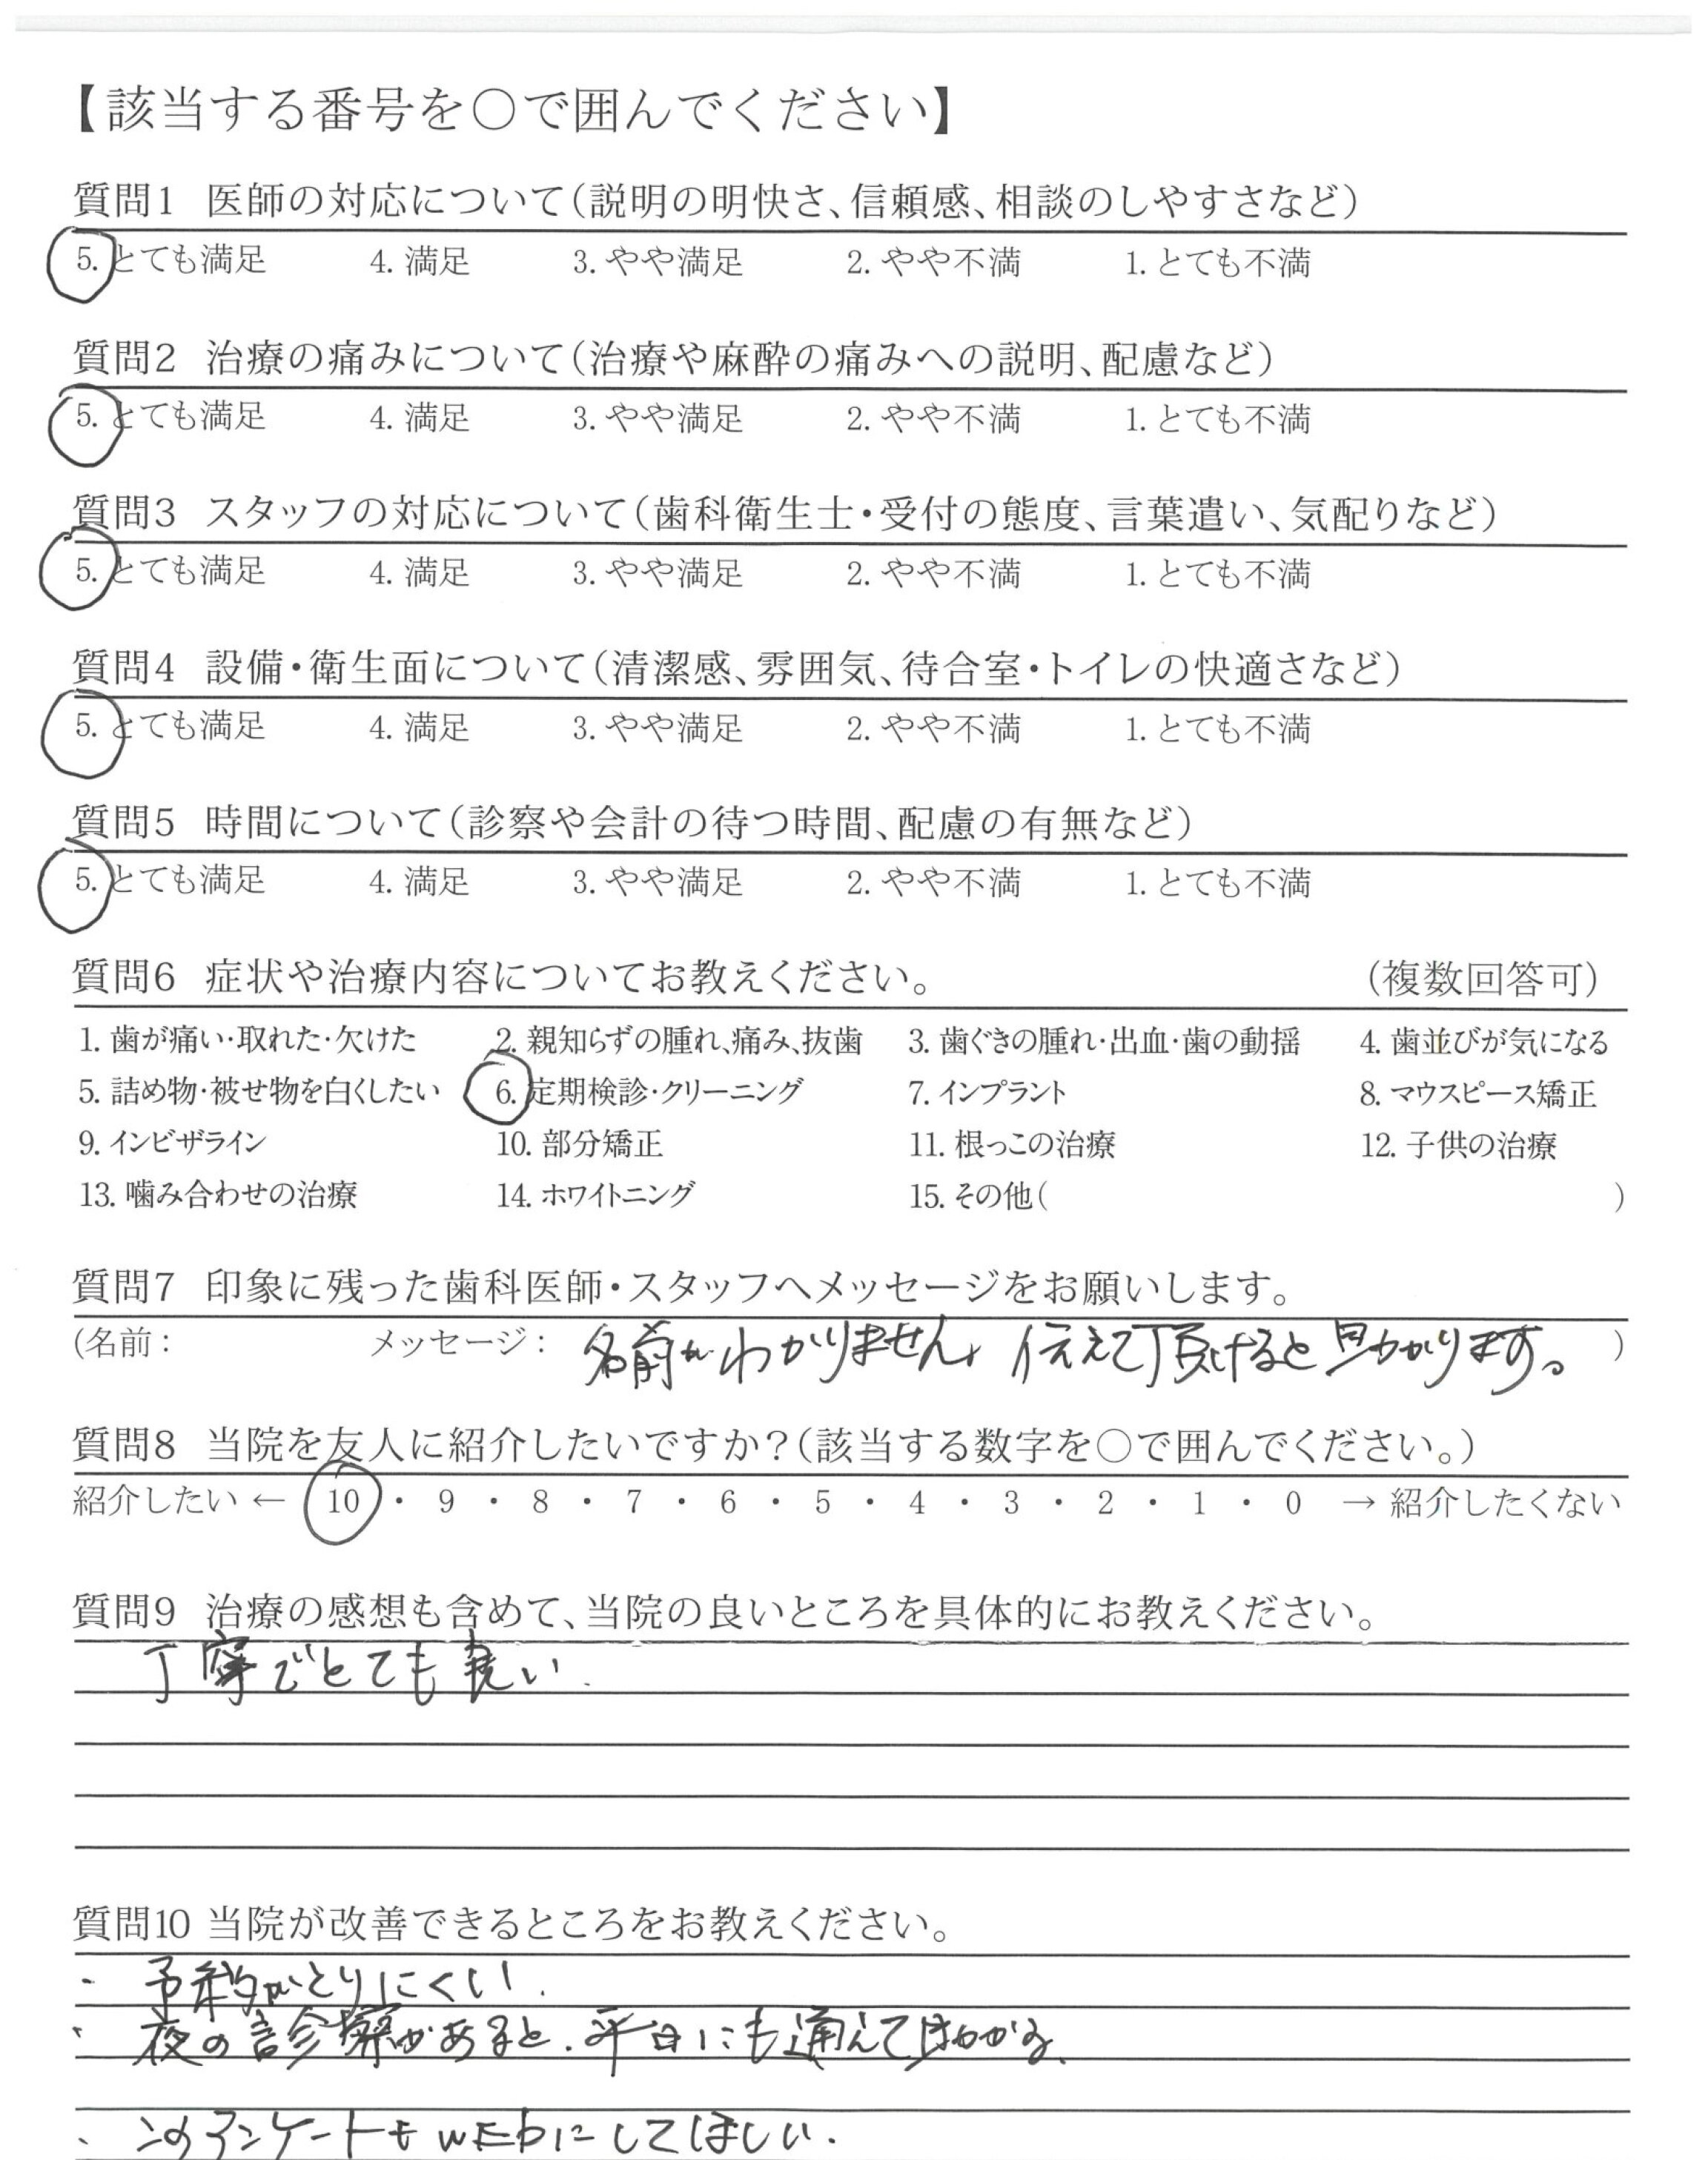 【該当する番号を○で囲んでください】
質問1 医師の対応について(説明の明快さ、信頼感、相談のしやすさなど)
5. とても満足 4. 満足 3. やや満足 2. やや不満 1. とても不満
質問2 治療の痛みについて(治療や麻酔の痛みへの説明、配慮など)
5. とても満足 4. 満足 3. やや満足 2. やや不満 1. とても不満
質問3 スタッフの対応について(歯科衛生士・受付の態度、言葉遣い、気配りなど)
5. とても満足 4. 満足 3. やや満足 2. やや不満 1. とても不満
質問4 設備・衛生面について(清潔感、雰囲気、待合室・トイレの快適さなど)
5. とても満足 4. 満足 3. やや満足 2. やや不満 1. とても不満
質問5 時間について(診察や会計の待つ時間、配慮の有無など)
5. とても満足 4. 満足 3. やや満足 2. やや不満 1. とても不満
質問6 症状や治療内容についてお教えください。 (複数回答可)
1. 歯が痛い・取れた・欠けた 2. 親知らずの腫れ、痛み、抜歯 3. 歯ぐきの腫れ・出血・歯の動揺 4. 歯並びが気になる
5. 詰め物・被せ物を白くしたい 6. 定期検診・クリーニング 7. インプラント 8. マウスピース矯正
9. インビザライン 10. 部分矯正 11. 根っこの治療 12. 子供の治療
13. 噛み合わせの治療 14. ホワイトニング 15. その他( )
質問7 印象に残った歯科医師・スタッフへメッセージをお願いします。
(名前: メッセージ: 名前がわかりません、伝えて頂けると助かります。 )
質問8 当院を友人に紹介したいですか?(該当する数字を○で囲んでください。)
紹介したい ← 10 ・ 9 ・ 8 ・ 7 ・ 6 ・ 5 ・ 4 ・ 3 ・ 2 ・ 1 ・ 0 → 紹介したくない
質問9 治療の感想も含めて、当院の良いところを具体的にお教えください。
丁寧でとても良い.
質問10 当院が改善できるところをお教えください。
・ 予約がとりにくい.
・ 夜の診察があると、平日にも通えて助かる.
・ このアンケートもWEBにしてほしい.